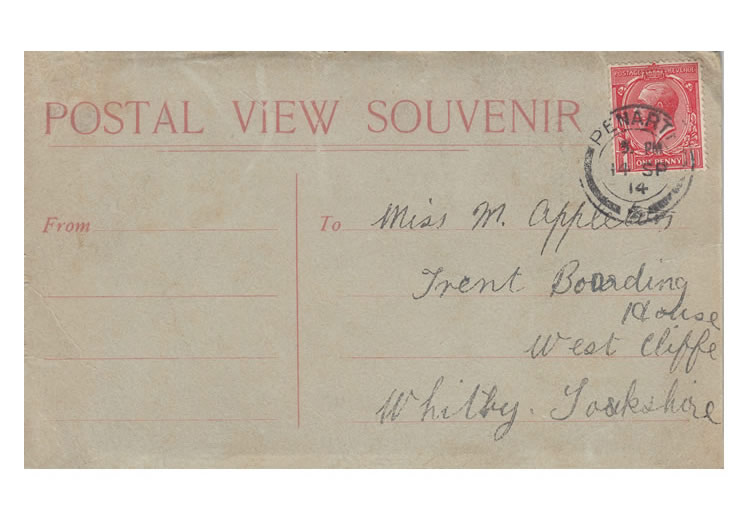 POSTAL ViEW SOUVENIR
POSTAGE REVENUE
ONE PENNY
1
PENARTH
PM
14 SP
14
From
To
Miss M.
Trent Boarding
House
West Cliffe
Whitby. Yorkshire